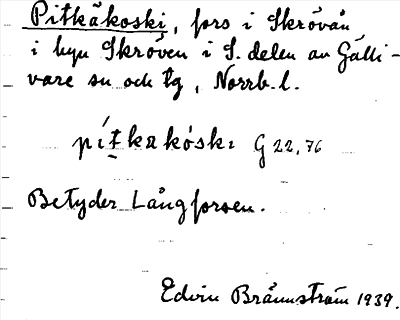 Pitkäkoski, fors i Skrövån
i byn Skröven i S. delen av Gälli-
vare sn och tg, Norrb. l.
pítkakóskı G 22, 76
Betyder Långforsen.
Edvin Brännström 1939.